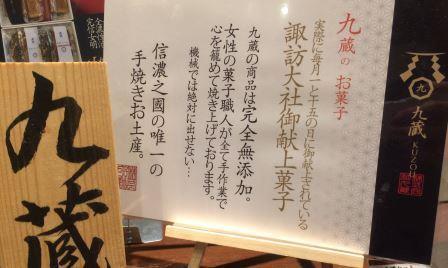 九蔵のお菓子
実際に毎月一と十五の日に御献上されている
諏訪大社御献上菓子
九蔵の商品は完全無添加。
女性の菓子職人が全て手作業で
心を籠めて焼き上げております。
機械では絶対に出せない…
信濃之國の唯一の
手焼きお土産。
九
九蔵
KUZOH
九蔵